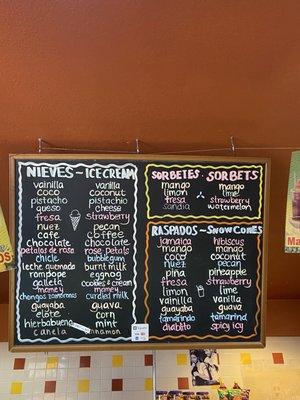 NIEVES ~ ICE CREAM
vainilla vanilla
coco coconut
pistachio pistachio
queso cheese
fresa strawberry
nuez pecan
café coffee
chocolate chocolate
petalos de rosa rose petals
chicle bubblegum
leche quemada burnt milk
rompope eggnog
galleta cookies & cream
mamey mamey
chongos zamoranos curdled milk
guayaba guava
elote corn
hierbabuena mint
canela cinnamon
SORBETES ~ SORBETS
mango mango
limon lime
fresa strawberry
sandia watermelon
RASPADOS ~ SNOW CONES
jamaica hibiscus
mango mango
coco coconut
nuez pecan
piña pineapple
fresa strawberry
limon lime
vainilla vanilla
guayaba guava
tamarindo tamarind
diablito spicy icy